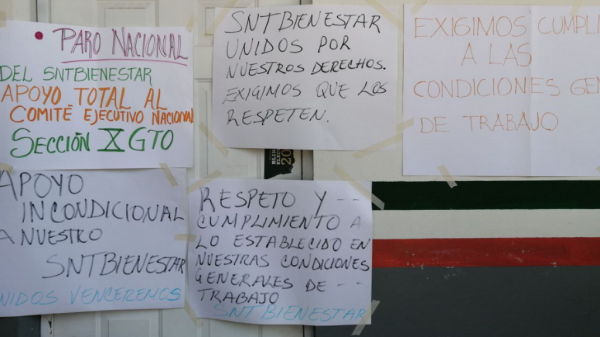 PARO NACIONAL
DEL SNTBIENESTAR
APOYO TOTAL AL
COMITÉ EJECUTIVO NACIONAL
SECCIÓN X GTO
SNTBIENESTAR
UNIDOS POR
NUESTROS DERECHOS.
EXIGIMOS QUE LOS
RESPETEN.
EXIGIMOS CUMPLI
A LAS
CONDICIONES GEN
DE TRABAJO
APOYO
INCONDICIONAL
A NUESTRO
SNTBIENESTAR
UNIDOS VENCEREMOS
RESPETO Y --
CUMPLIMIENTO A
LO ESTABLECIDO EN
NUESTRAS CONDICIONES
GENERALES DE - --
TRABAJO
SNTBIENESTAR